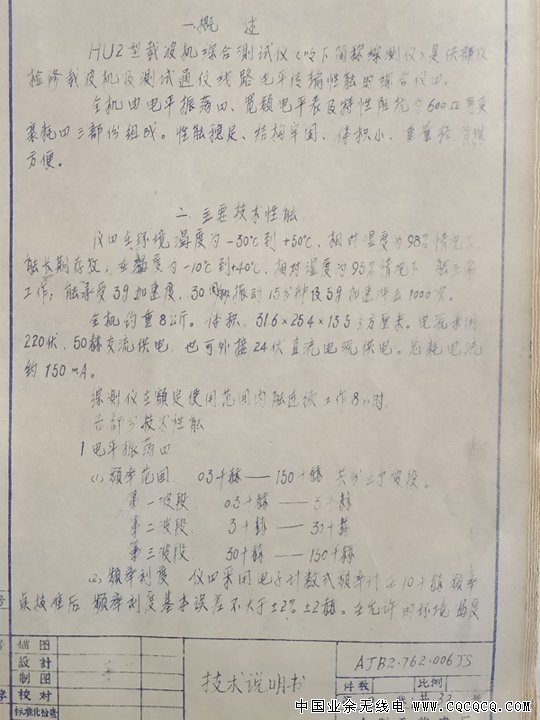 一.概 述
HU2型载波机综合测试仪(以下简称综测仪)是供部队
检修载波机及测试通仪线路电平传输性能的综合仪四.
全机由电平振荡四、宽频电平表及特性阻抗为600Ω可变
衰耗四三部份组成。性能稳定、结构牢固、体积小、重量轻、背携
方便。
二.主要技术性能
仪四在环境温度为-30℃到+50℃、相对湿度为98%情况下
能长期存放;在温度为-10℃到+40℃、相对湿度为95%情况下
工作;能承受3g加速度、30周振动15分钟及5g加速冲击1000次.
全机约重8公斤。体积:31.6×25.4×13.5立方厘米。电源采用
220伏、50赫交流供电,也可外接24伏直流电源供电。总耗电流
约150mA。
综测仪在额定使用范围内能连续工作8小时.
各部分技术性能
1电平振荡四
(1)频率范围 0.3千赫——150千赫 共分三个波段。
第一波段 0.3千赫——3千赫
第二波段 3千赫——30千赫
第三波段 30千赫——150千赫
(2)频率刻度 仪四采用电子计数式频率计在10千赫频率
点校准后 频率刻度基本误差不大于±2%±2赫。在允许的环境温度
描图
设计
制图
校对
标准化检查
技术说明书
AJB2.762.006JS
件数
比例
共 32
中国业余无线电
www.cqcqcq.com